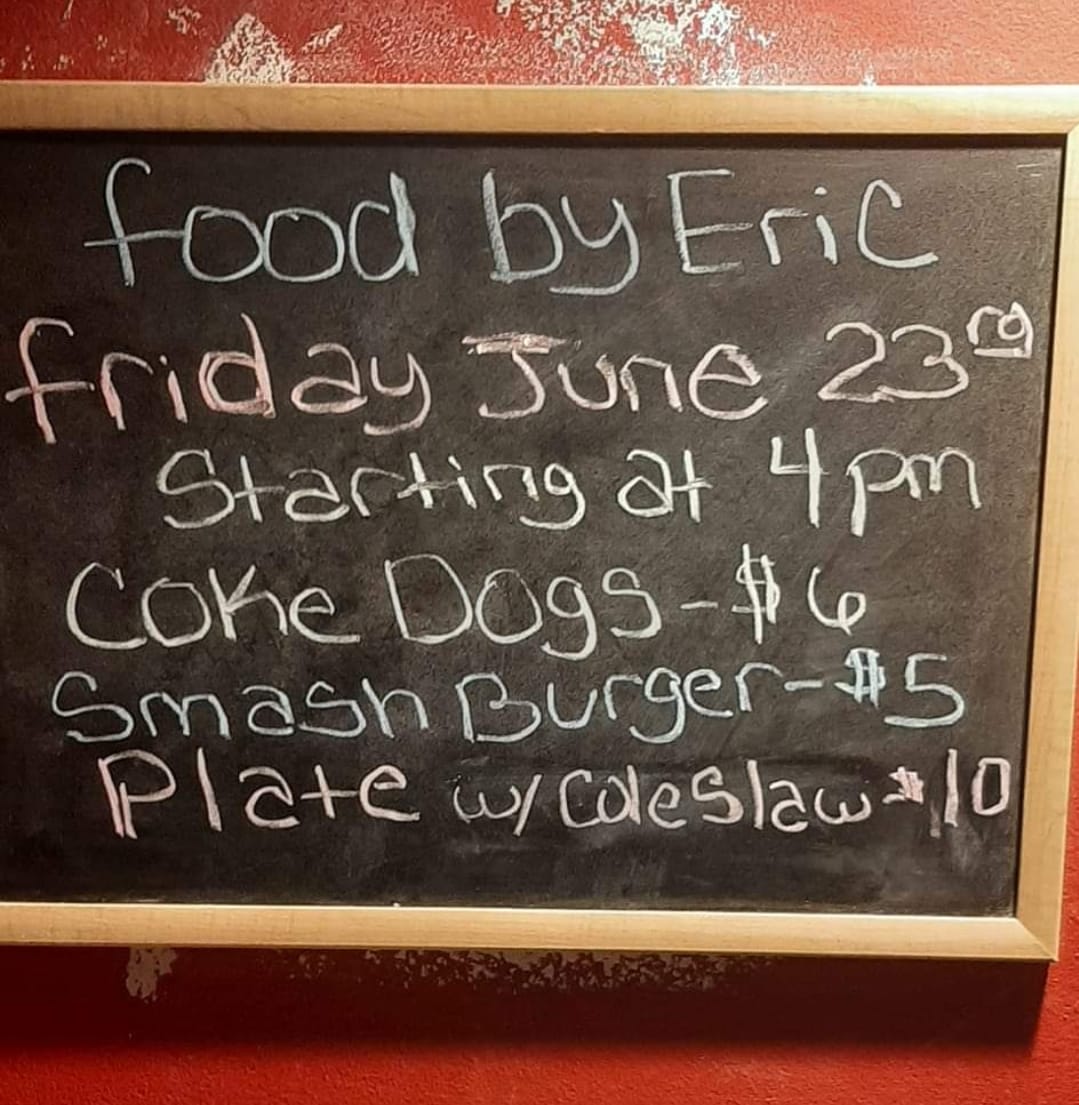 food by Eric
friday June 23rd
Starting at 4pm
Coke Dogs-$6
Smash Burger-$5
Plate w/ Coleslaw-$10